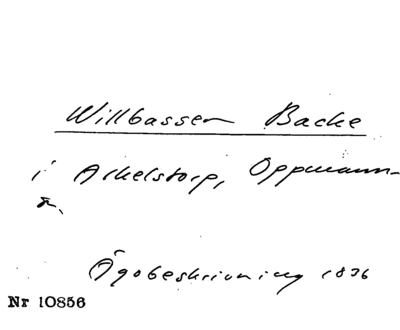 Willbassen Backe
i Arkelstorp, Oppmann-
a.
Ägobeskrivning 1836
Nr 10856